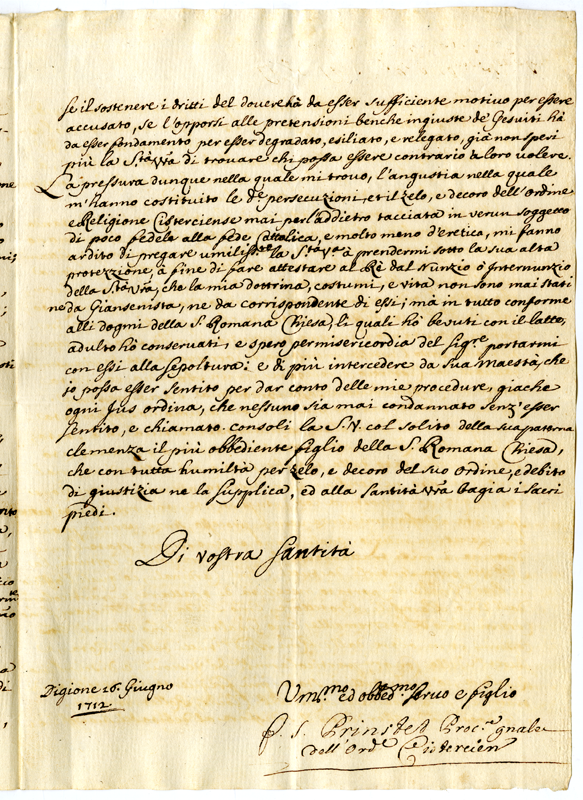 se il sostenere i dritti del dovere hà da esser sufficiente motivo per essere
accusato, se l'opporsi alle pretensioni benche ingiuste de Gesuiti hà
da esser fondamento per esser degradato, esiliato, e relegato, già non speri
più la Stà Vrā di trovare chi possa essere contrario à loro volere.
La pressura dunque nella quale mi trovo, l'angustia nella quale
m'hanno costituito le de persecuzioni, et il zelo, e decoro dell'Ordine
e Religione Cisterciense mai per l'addietro tacciata in verun soggetto
di poco fedele alla fede Cattolica, e molto meno d'eretica, mi fanno
ardito di pregare umilisste la Stà Va à prendermi sotto la sua alta
protezzione, à fine di fare attestare al Rè dal Nunzio ò Internunzio
della Stà Vrā, che la mia dottrina, costumi, e vita non sono mai stati
ne da Giansenista, ne da corrispondente di essi; mà in tutto conforme
alli dogmi della S. Romana Chiesa, li quali hò bevuti con il latte,
adulto hò conservati, e spero per misericordia del Sigre portarmi
con essi alla sepoltura: e di più intercedere da Sua Maestà, che
io possa esser sentito per dar conto delle mie procedure, giache
ogni Jus ordina, che nessuno sia mai condannato senz'esser
sentito, e chiamato. consoli la S.V. col solito della sua paterna
clemenza il più obbediente figlio della S. Romana Chiesa,
che con tutta humiltà per zelo, e decoro del suo ordine, e debito
di giustizia ne la supplica, ed alla Santità Vrā bagia i sacri
piedi.
Di vostra Santità
Digione 26. Giugno
1712.
Umᵐᵒ ed obbedᵐᵒ servo e figlio
f. S. Prinstet Proc.ᵃ gnale
dell'Ordᵉ Cistercien